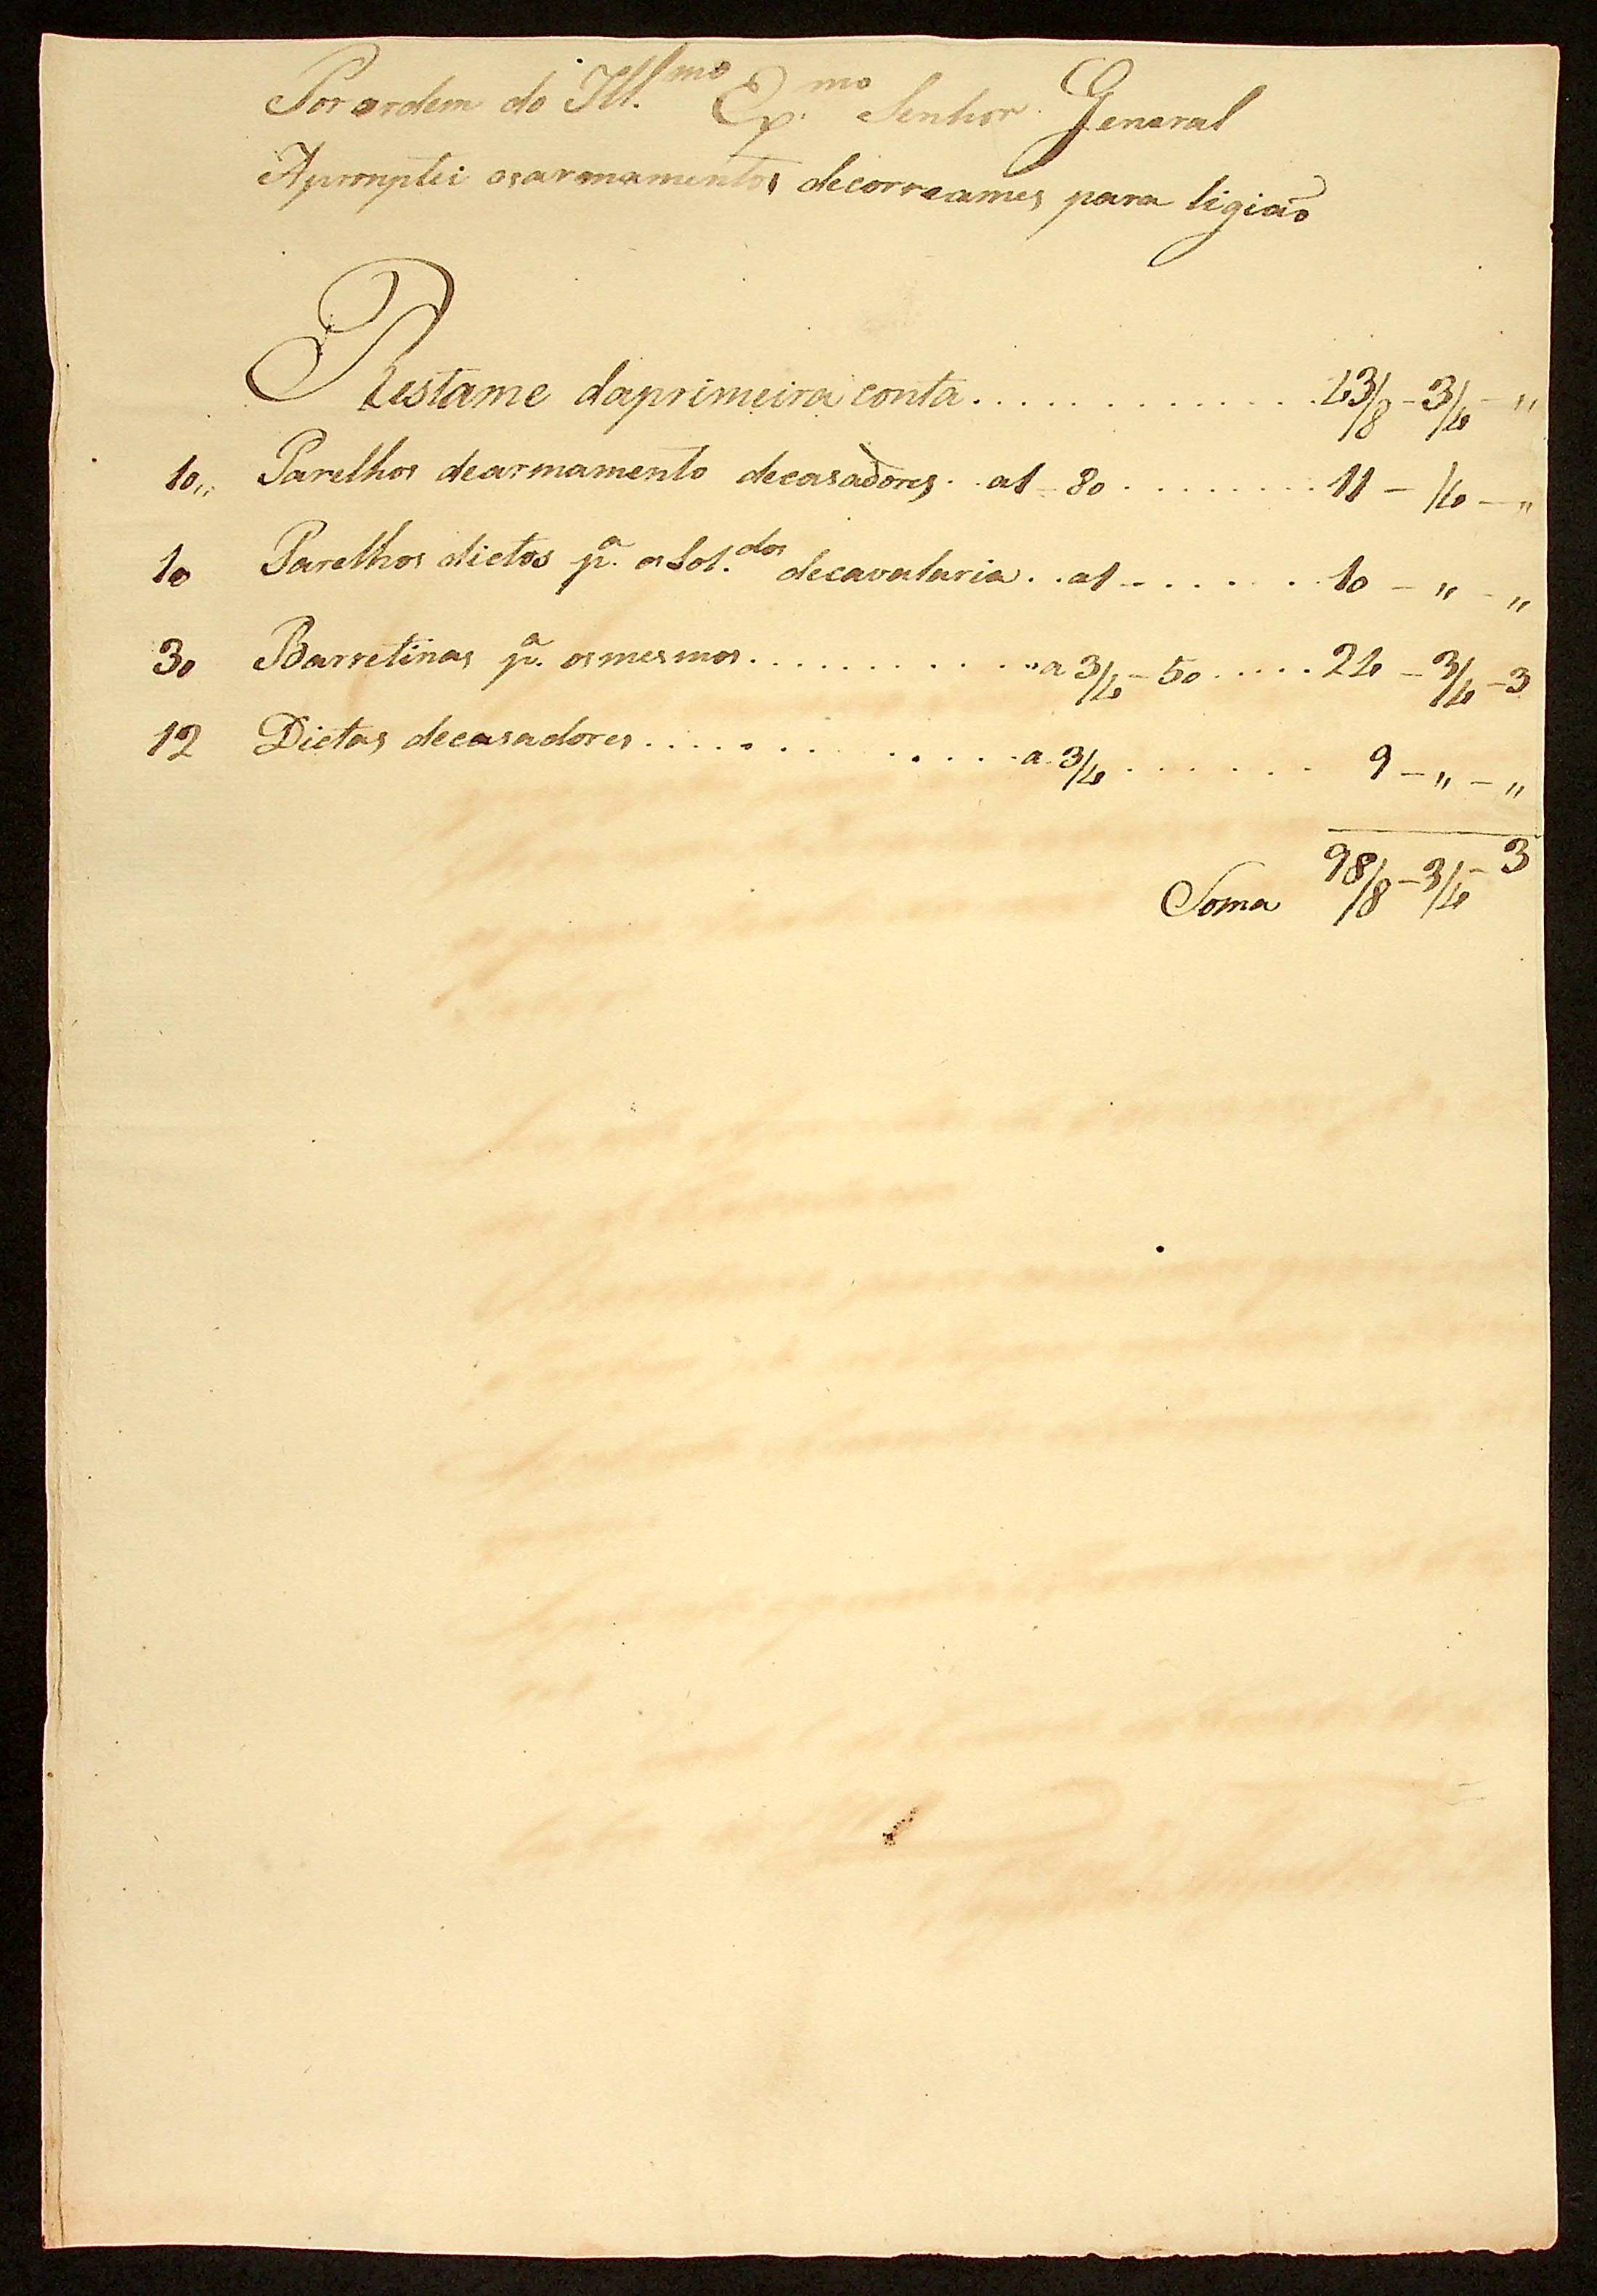 Por ordem do Ill.mo Ex.mo Senhor General
Apromptei osarmamentos decorreames para ligião
Restame daprimeira conta . . . . . . . . . . . . . 43/8 - 3/4 - "
10 ,, Parelhos dearmamento decasadores . . a1 - 80 . . . . . . . . 11 - /4 - "
10 Parelhos dictos p.a os Sol.dos decavalaria . . a1 - . . . . . . 10 - " - "
30 Barretinas p.a osmesmos . . . . . . . . . . . . a 3/4 - 50 . . . . . 24 - 3/4 - 3
12 Dictas decasadores . . . . . . . . . . . . . . a 3/4 . . . . . . . 9 - " - "
Soma 98/8 - 3/4 - 3